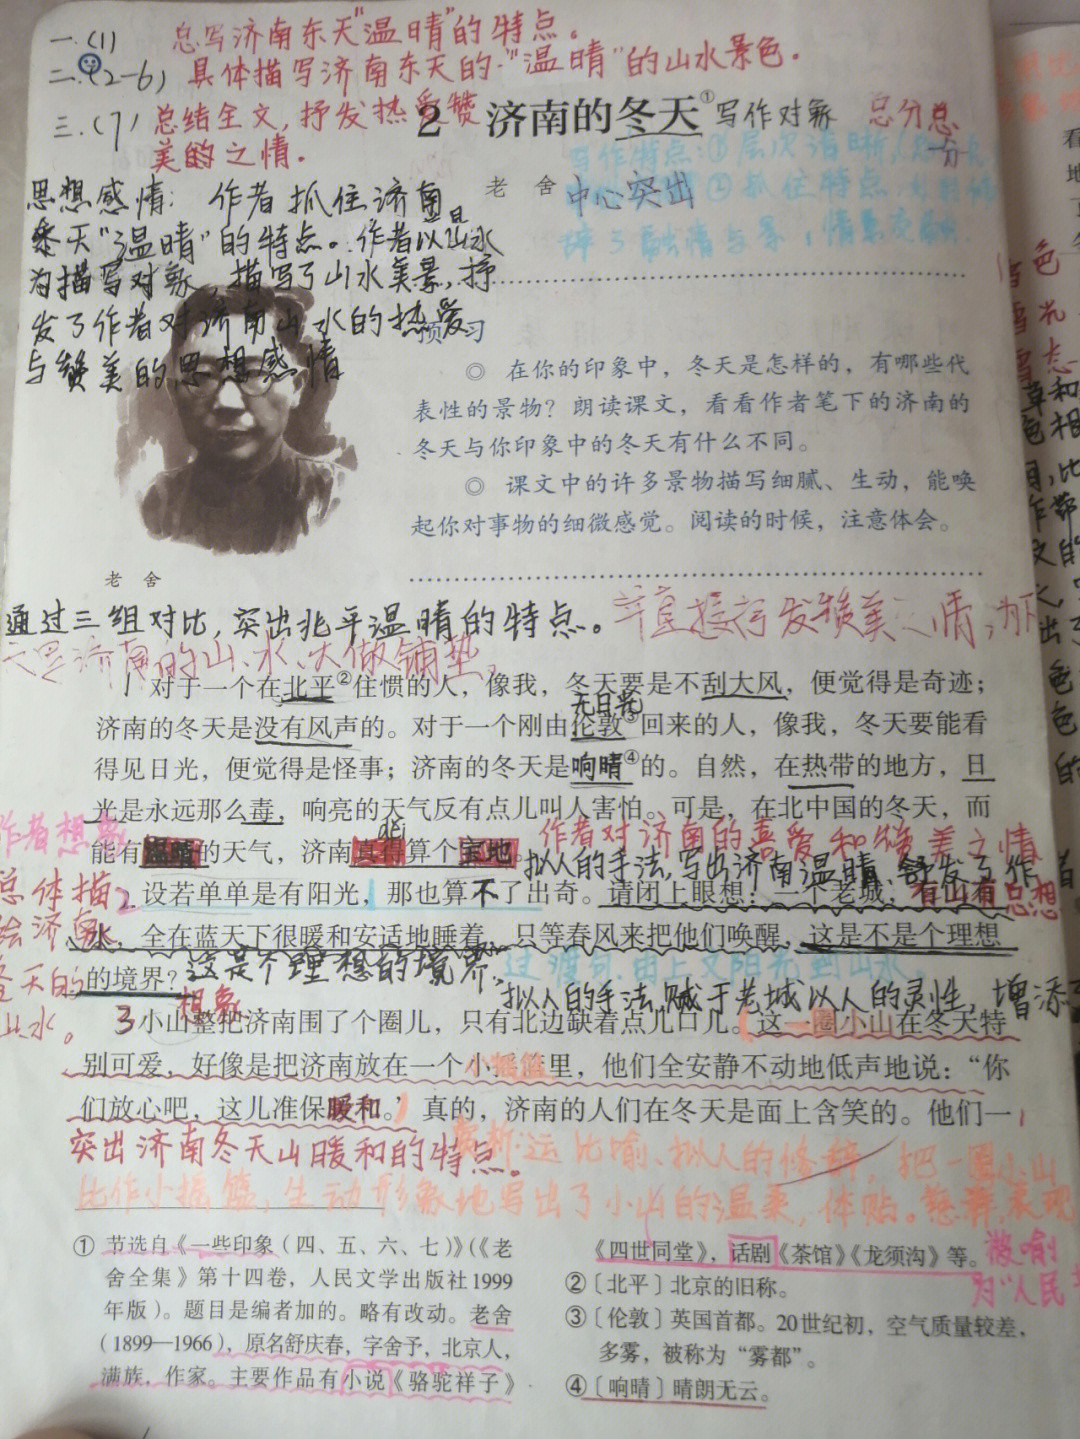 一.(1) 总写济南东天"温晴"的特点。
二.(2-6) 具体描写济南东天的"温晴"的山水景色.
三.(7) 总结全文,抒发热爱赞
美的之情.
2 济南的冬天① 写作对象 总分总
写作特点:①层次清晰,
老 舍 中心突出 ②抓住特点,
融情与景,情景交融
思想感情: 作者抓住济南
冬天"温晴"的特点。作者以山水
为描写对象,描写了山水美景,抒
发了作者对济南山水的热爱
与赞美的思想感情
预 习
◎ 在你的印象中,冬天是怎样的,有哪些代
表性的景物?朗读课文,看看作者笔下的济南的
冬天与你印象中的冬天有什么不同。
◎ 课文中的许多景物描写细腻、生动,能唤
起你对事物的细微感觉。阅读的时候,注意体会。
老 舍
通过三组对比,突出北平温晴的特点。
直接抒发赞美之情,为下
文写济南的山、水、天做铺垫
1 对于一个在北平②住惯的人,像我,冬天要是不刮大风,便觉得是奇迹;
无日光
济南的冬天是没有风声的。对于一个刚由伦敦③回来的人,像我,冬天要能看
得见日光,便觉得是怪事;济南的冬天是响晴④的。自然,在热带的地方,日
光是永远那么毒,响亮的天气反有点儿叫人害怕。可是,在北中国的冬天,而
děi 作者对济南的喜爱和赞美之情
能有温晴的天气,济南真得算个宝地。
拟人的手法,写出济南温晴、舒发了作者
2 设若单单是有阳光,那也算不了出奇。请闭上眼想:一个老城,有山有
水,全在蓝天下很暖和安适地睡着,只等春风来把他们唤醒,这是不是个理想
的境界?这是个理想的境界, 过渡句.由上文阳光到山水。
想象 拟人的手法,赋于老城以人的灵性,增添
作者想象
总体描
绘济南
冬天的
山水。
3 小山整把济南围了个圈儿,只有北边缺着点儿口儿。这一圈小山在冬天特
别可爱,好像是把济南放在一个小摇篮里,他们全安静不动地低声地说:“你
们放心吧,这儿准保暖和。”真的,济南的人们在冬天是面上含笑的。他们一
突出济南冬天山暖和的特点。
赏析:运比喻、拟人的修辞,把一圈小山
比作小摇篮,生动形象地写出了小山的温柔,体贴。慈善,表现
① 节选自《一些印象(四、五、六、七)》(《老
舍全集》第十四卷,人民文学出版社1999
年版)。题目是编者加的。略有改动。老舍
(1899—1966),原名舒庆春,字舍予,北京人,
满族,作家。主要作品有小说《骆驼祥子》
《四世同堂》,话剧《茶馆》《龙须沟》等。
为“人民
②〔北平〕北京的旧称。
③〔伦敦〕英国首都。20世纪初,空气质量较差,
多雾,被称为“雾都”。
④〔响晴〕晴朗无云。